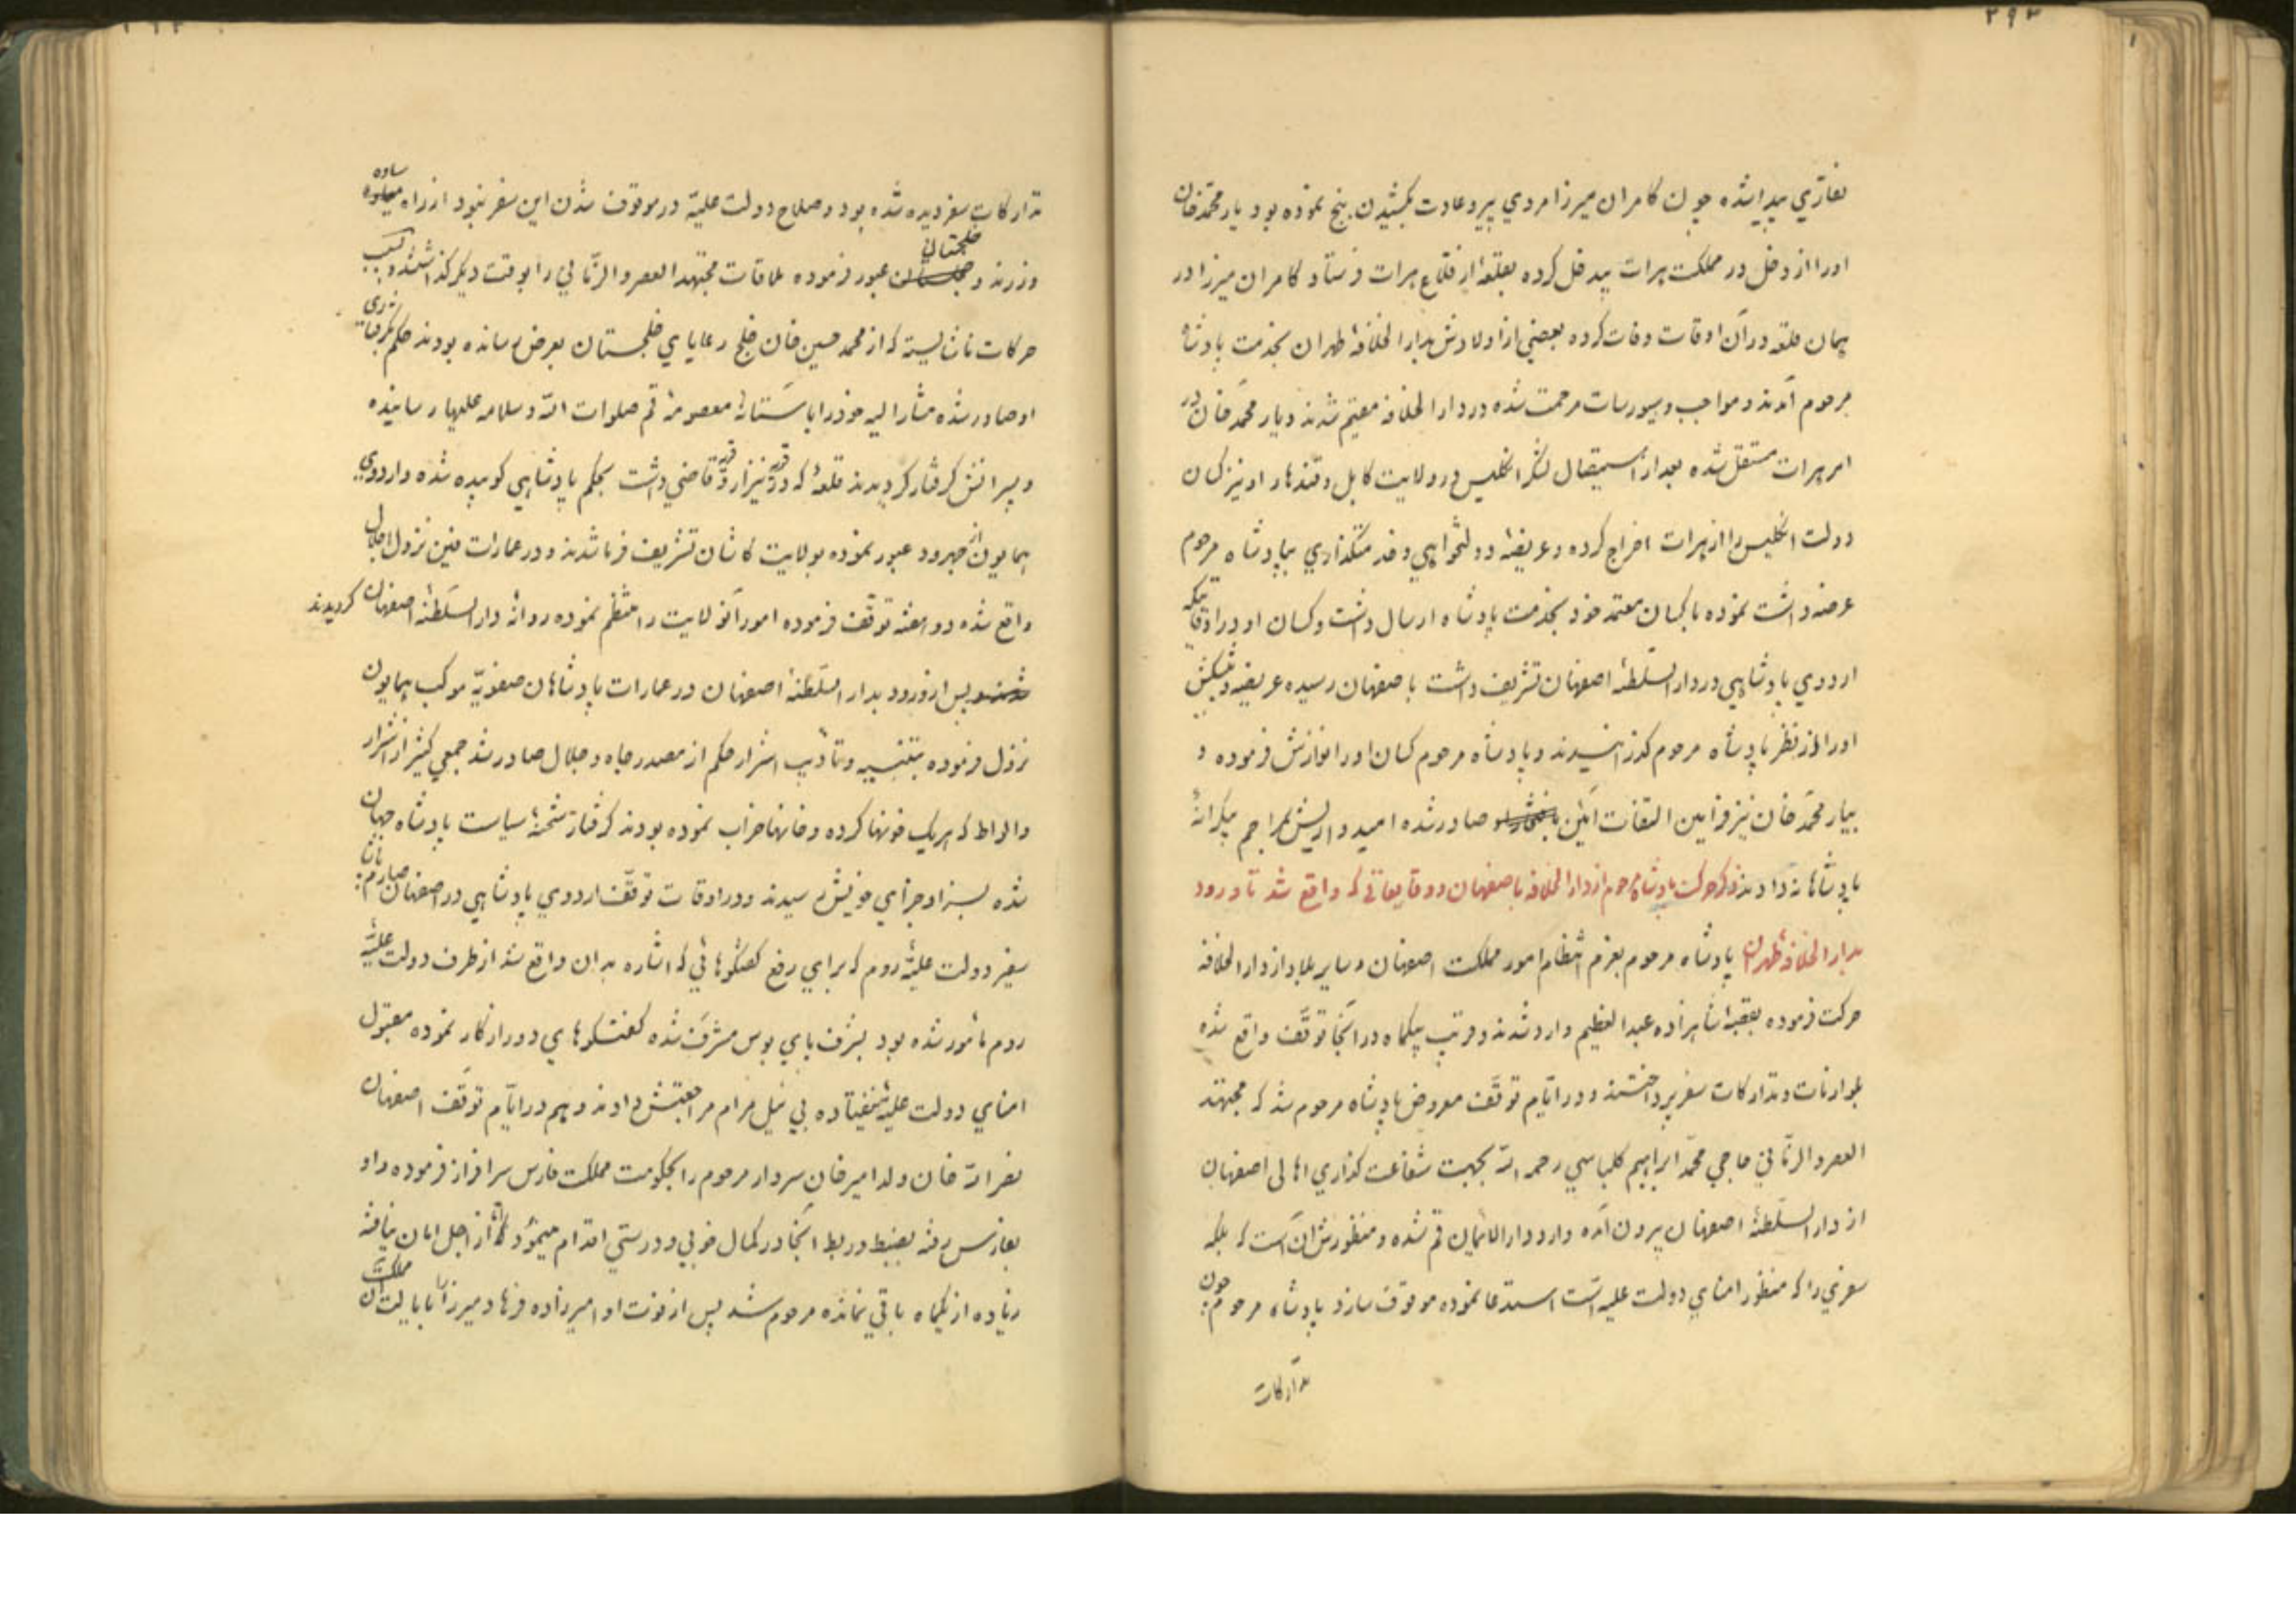 ۲۹۳
نقاری پیدا شده چون کامران میرزا مردی پیر و عادت بکشیدن بنج نموده بود یار محمد خان
او را از دخل در مملکت هرات بیدخل کرده بقلعه از قلاع هرات فرستاد کامران میرزا در
همان قلعه در آن اوقات وفات کرده بعضی از اولادش بدار الخلافه طهران بخدمت پادشاه
مرحوم آمدند و مواجب و سیورسات مرحمت شده در دار الخلافه مقیم شدند و یار محمد خان در
امر هرات مستقل شده بعد از استیصال لشکر انکلیس در ولایت کابل و قندهار او نیز کسان
دولت انکلیس را از هرات اخراج کرده و عریضه دولتخواهی و خدمتکذاری بپادشاه مرحوم
عرضه داشت نموده با کسان معتمد خود بخدمت پادشاه ارسال داشت و کسان او در اوقاتیکه
اردوی پادشاهی در دار السلطنه اصفهان تشریف داشت باصفهان رسیده عریضه و پیشکش
او را از نظر پادشاه مرحوم کذرانیدند و پادشاه مرحوم کسان او را نوازش فرموده و
بیار محمد خان نیز فرامین التفات آئین صادر شده امیدواریش بمراحم بیکرانه
پادشاهانه دادند ذکر حرکت پادشاه مرحوم از دار الخلافه باصفهان و وقایعاتی که واقع شد تا ورود
بدار الخلافه طهران پادشاه مرحوم بعزم انتظام امور مملکت اصفهان و سایر بلاد از دار الخلافه
حرکت فرموده بقصبه شاهزاده عبد العظیم وارد شدند و قریب بیکماه در آنجا توقف واقع شده
بلوازمات و تدارکات سفر پرداختند و در ایام توقف معروض پادشاه مرحوم شد که مجتهد
العصر و الزمانی حاجی محمد ابراهیم کلباسی رحمه الله بجهت شفاعت کذاری اهالی اصفهان
از دار السلطنه اصفهان بیرون آمده وارد دار الایمان قم شده و منظورش آن است که بلکه
سفری را که منظور امنای دولت علیه است استدعا نموده موقوف سازد پادشاه مرحوم چون
تدارکات
تدارکات سفر دیده شده بود و صلاح دولت علیه در موقوف شدن این سفر نبود از راه ساوه
و زرند و خلجستان عبور فرموده ملاقات مجتهد العصر و الزمانی را بوقت دیکر کذاشتند و بسبب
حرکات ناشایسته که از محمد حسین خان خلج رعایای خلجستان بعرض رسانده بودند حکم بکرفتاری
او صادر شده مشار الیه خود را بآستانه معصومه قم صلوات الله و سلامه علیها رسانیده
و پسرانش کرفتار کردیدند قلعه که در قریه نیزار و قریه قاضی داشت بحکم پادشاهی کوبیده شده و اردوی
همایون از جهرود عبور نموده بولایت کاشان تشریف فرما شدند و در عمارات فین نزول اجلال
واقع شده دو هفته توقف فرموده امور آنولایت را منتظم نموده روانه دار السلطنه اصفهان کردیدند
پس از ورود بدار السلطنه اصفهان در عمارات پادشاهان صفویه موکب همایون
نزول فرموده بتنبیه و تأدیب اشرار حکم از مصدر جاه و جلال صادر شد جمعی کثیر از اشرار
و الواط که هریک خونها کرده و خانها خراب نموده بودند کرفتار شحنه سیاست پادشاه جهان
شده بسزا و جزای خویش رسیدند و در اوقات توقف اردوی پادشاهی در اصفهان صارم پاشا
سفیر دولت علیه روم که برای رفع کفتکوهائی که اشاره بدان واقع شد از طرف دولت علیه
روم مأمور شده بود بشرف پای بوس مشرف شده کفتکوهای دور از کار نموده مقبول
امنای دولت علیه نیفتاده بی نیل مرام مراجعتش دادند و هم در ایام توقف اصفهان
نصر الله خان ولد امیر خان سردار مرحوم را بحکومت مملکت فارس سرافراز فرموده و او
بفارس رفته بضبط و ربط آنجا در کمال خوبی و درستی اقدام مینمود از اجل امان نیافته
زیاده از یکماه باقی نمانده مرحوم شد پس از فوت او امیرزاده فرهاد میرزا بایالت آن مملکت